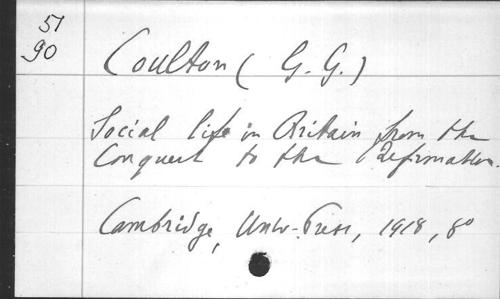 51
90
Coulton ( G. G. )
Social life in Britain from the
Conquest to the Reformation.
Cambridge, Univ.-Press, 1918, 8°